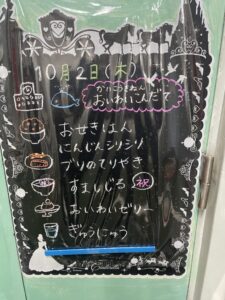 10月2日(木)
おいわいこんだて
おせきはん
にんじんシリシリ
ブリのてりやき
すましじる 祝
おいわいゼリー
ぎゅうにゅう